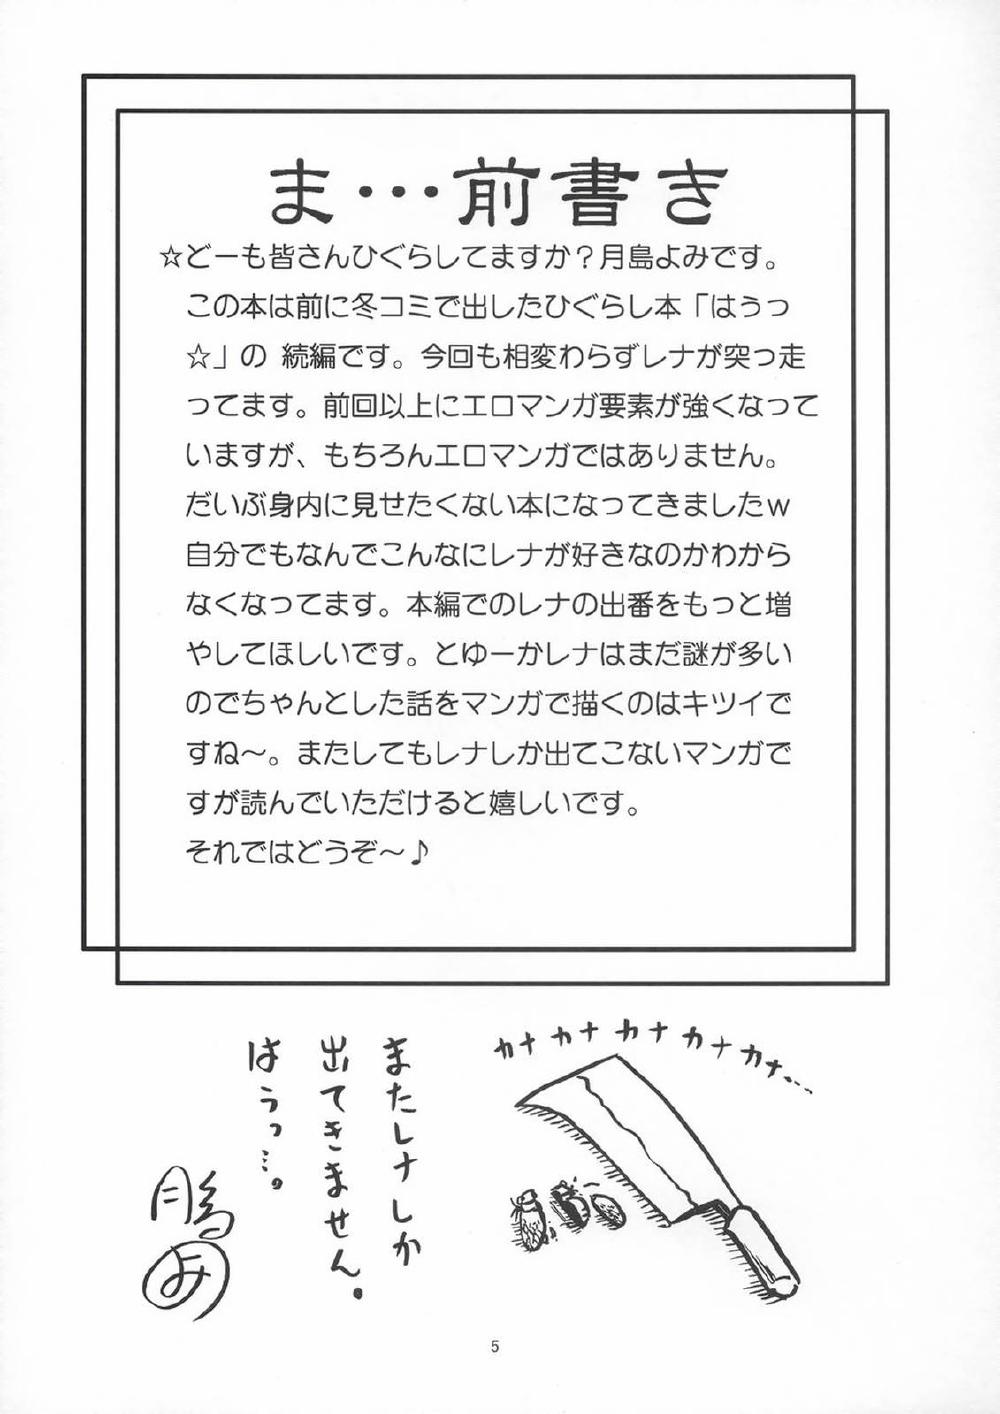 ま…前書き
☆どーも皆さんひぐらしてますか？月島よみです。
この本は前に冬コミで出したひぐらし本「はぅっ
☆」の 続編です。今回も相変わらずレナが突っ走
ってます。前回以上にエロマンガ要素が強くなって
いますが、もちろんエロマンガではありません。
だいぶ身内に見せたくない本になってきましたw
自分でもなんでこんなにレナが好きなのかわから
なくなってます。本編でのレナの出番をもっと増
やしてほしいです。とゆーかレナはまだ謎が多い
のでちゃんとした話をマンガで描くのはキツイで
すね～。またしてもレナしか出てこないマンガで
すが読んでいただけると嬉しいです。
それではどうぞ～♪
カナカナカナカナカナ…
またレナしか
出てきません。
はぅっ…。
月島
よみ
5